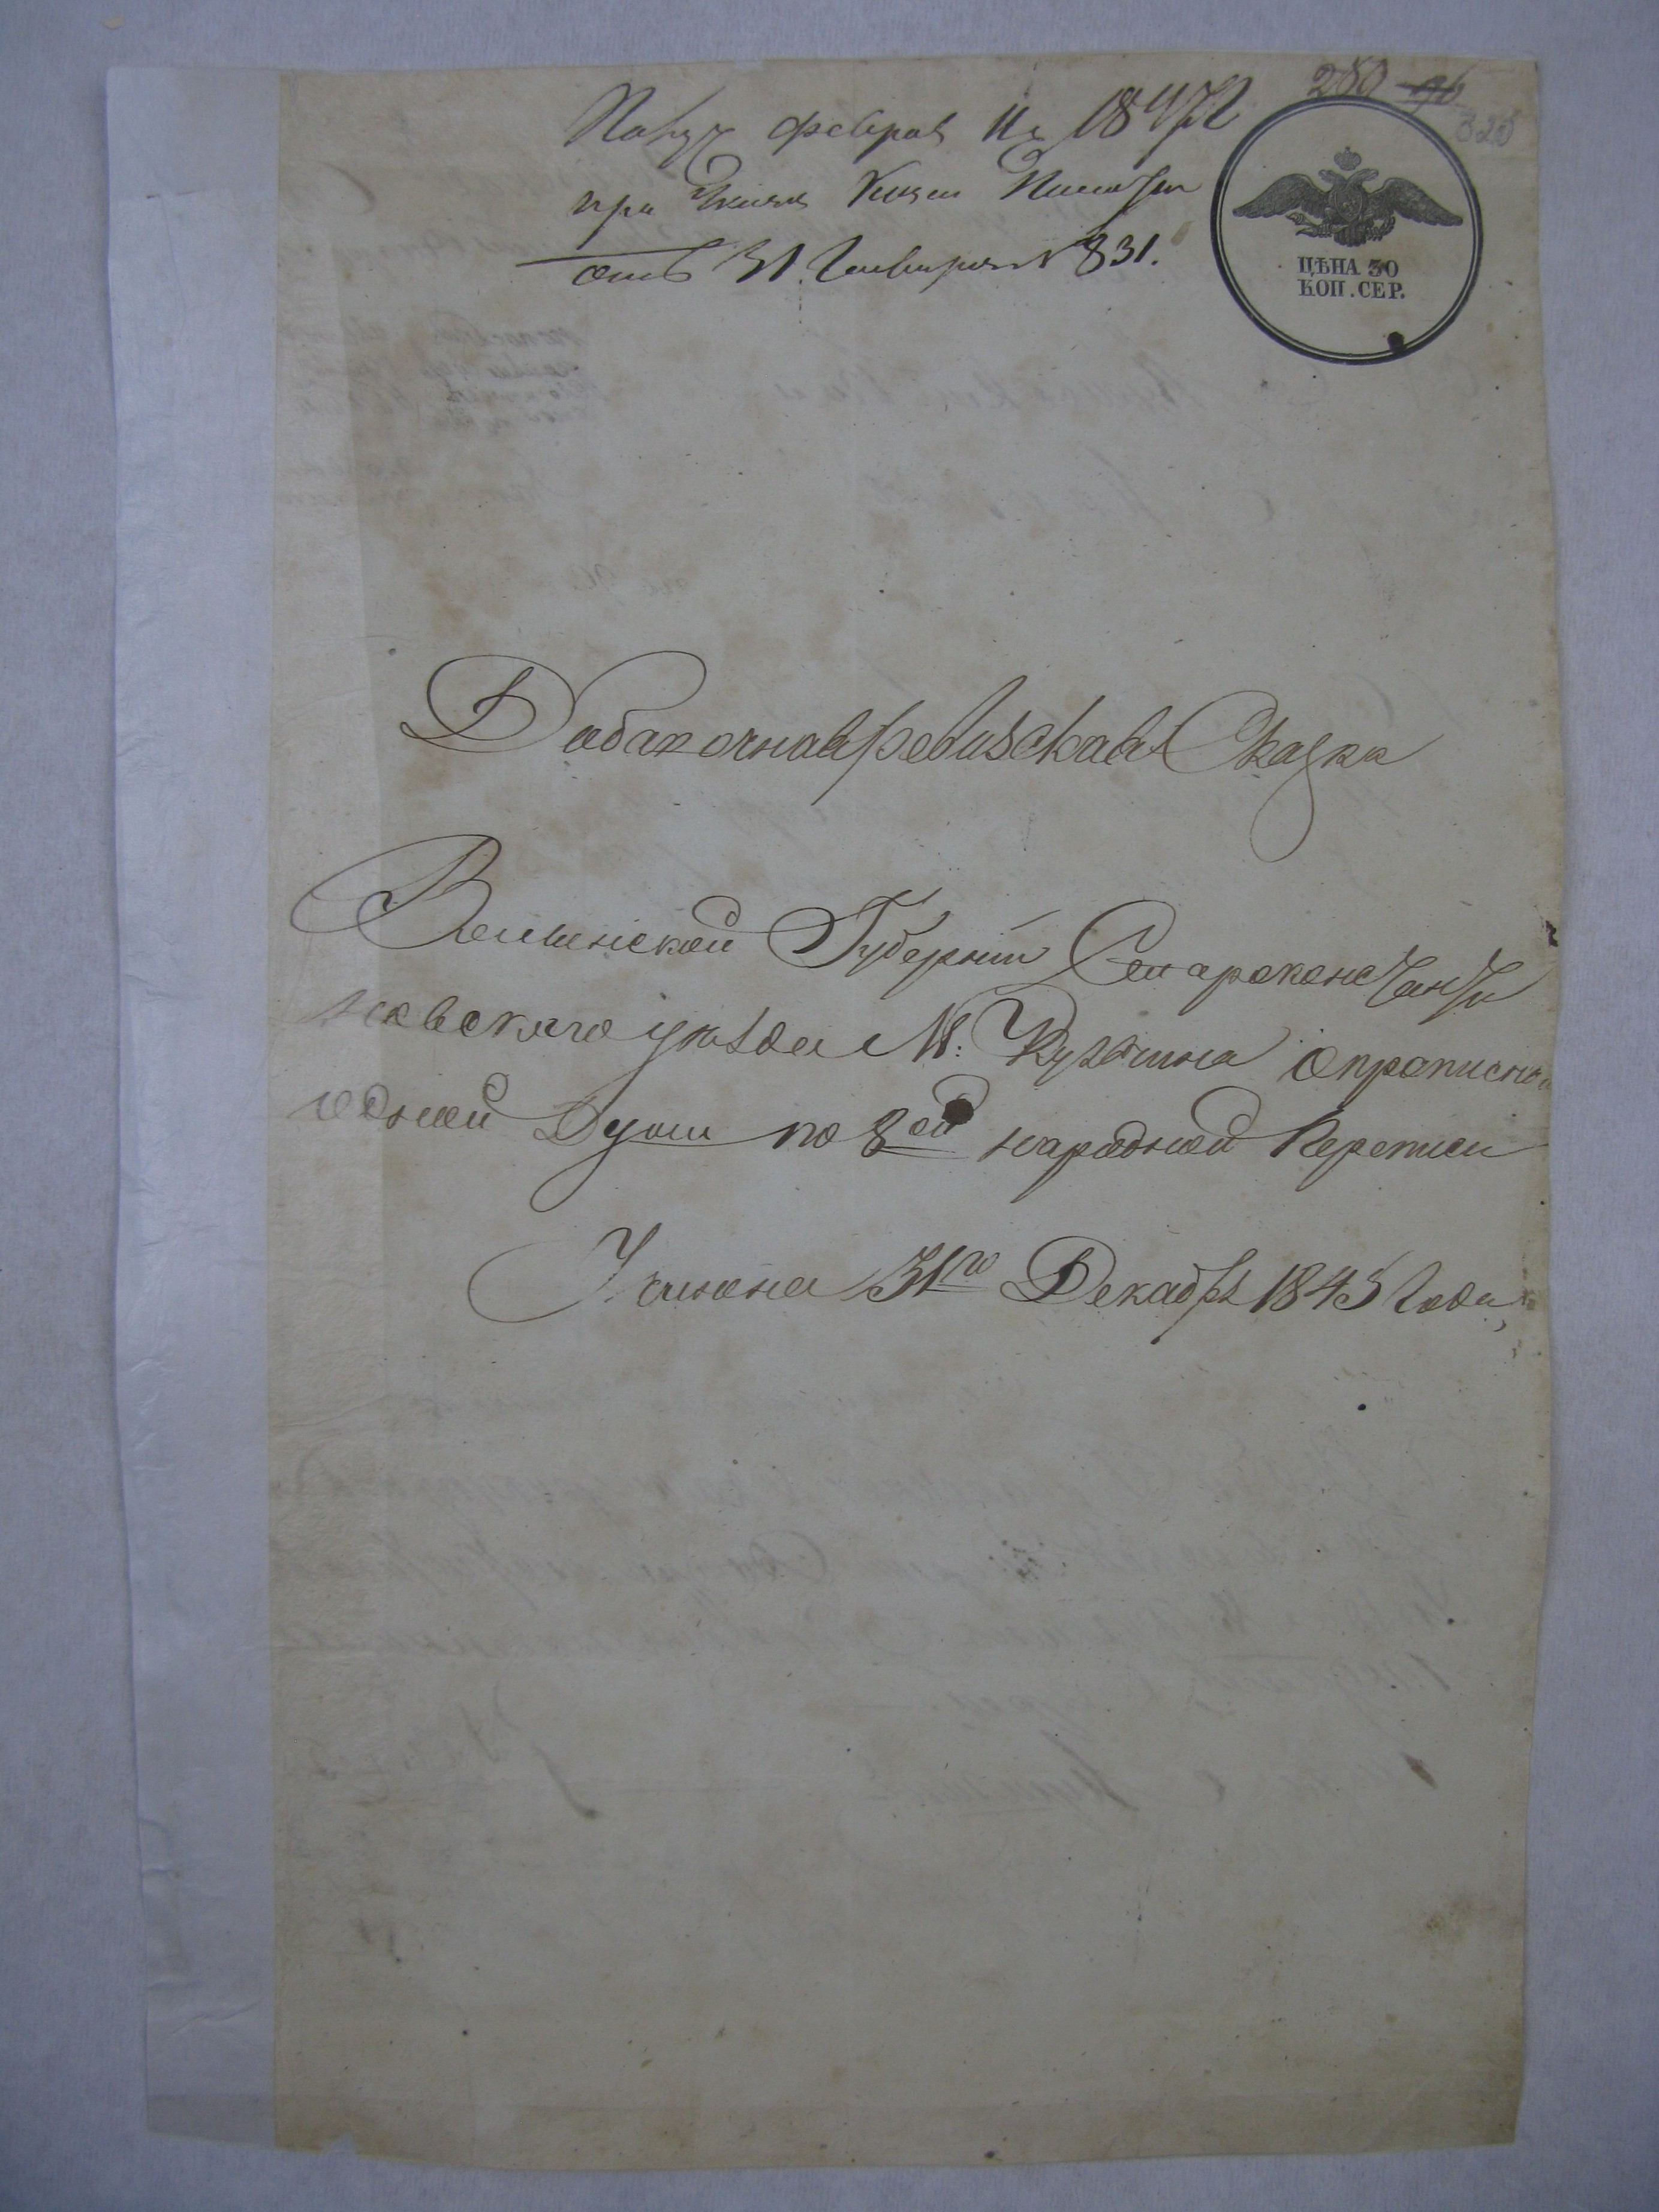 280 96
325
Получ Феврал 11 1847 г
при
отъ 31. Генваря № 831.
ЦѢНА 30
КОП. СЕР.
Добавочная ревизская Сказка
Волынской Губерніи Староконстанти
новскаго уѣзда М: Кульчина о прописной
одной Души по 8ой народной Переписи
31го Декабря 1845 Года